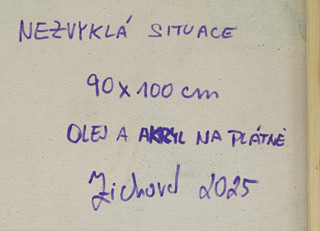 NEZVYKLÁ SITUACE
90 x 100 cm
OLEJ A AKRYL NA PLÁTNĚ
Zichová 2025